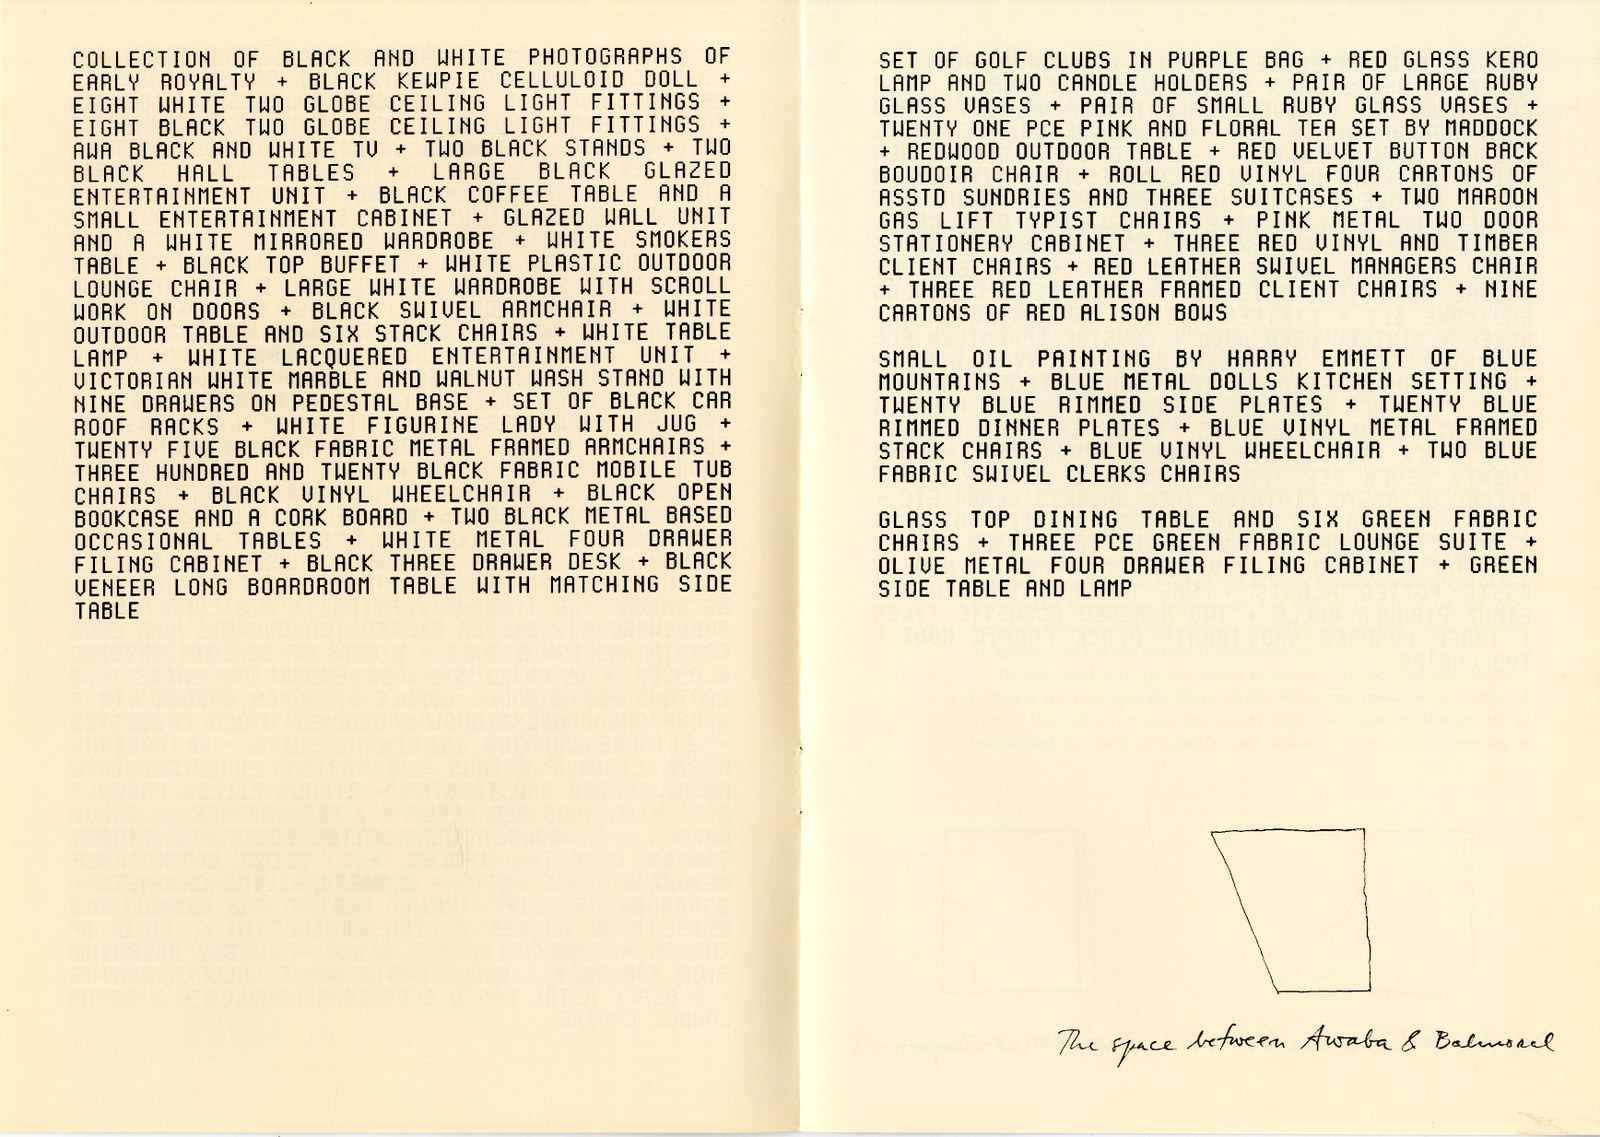 COLLECTION OF BLACK AND WHITE PHOTOGRAPHS OF
EARLY ROYALTY + BLACK KEWPIE CELLULOID DOLL +
EIGHT WHITE TWO GLOBE CEILING LIGHT FITTINGS +
EIGHT BLACK TWO GLOBE CEILING LIGHT FITTINGS +
AWA BLACK AND WHITE TV + TWO BLACK STANDS + TWO
BLACK HALL TABLES + LARGE BLACK GLAZED
ENTERTAINMENT UNIT + BLACK COFFEE TABLE AND A
SMALL ENTERTAINMENT CABINET + GLAZED WALL UNIT
AND A WHITE MIRRORED WARDROBE + WHITE SMOKERS
TABLE + BLACK TOP BUFFET + WHITE PLASTIC OUTDOOR
LOUNGE CHAIR + LARGE WHITE WARDROBE WITH SCROLL
WORK ON DOORS + BLACK SWIVEL ARMCHAIR + WHITE
OUTDOOR TABLE AND SIX STACK CHAIRS + WHITE TABLE
LAMP + WHITE LACQUERED ENTERTAINMENT UNIT +
VICTORIAN WHITE MARBLE AND WALNUT WASH STAND WITH
NINE DRAWERS ON PEDESTAL BASE + SET OF BLACK CAR
ROOF RACKS + WHITE FIGURINE LADY WITH JUG +
TWENTY FIVE BLACK FABRIC METAL FRAMED ARMCHAIRS +
THREE HUNDRED AND TWENTY BLACK FABRIC MOBILE TUB
CHAIRS + BLACK VINYL WHEELCHAIR + BLACK OPEN
BOOKCASE AND A CORK BOARD + TWO BLACK METAL BASED
OCCASIONAL TABLES + WHITE METAL FOUR DRAWER
FILING CABINET + BLACK THREE DRAWER DESK + BLACK
VENEER LONG BOARDROOM TABLE WITH MATCHING SIDE
TABLE
SET OF GOLF CLUBS IN PURPLE BAG + RED GLASS KERO
LAMP AND TWO CANDLE HOLDERS + PAIR OF LARGE RUBY
GLASS VASES + PAIR OF SMALL RUBY GLASS VASES +
TWENTY ONE PCE PINK AND FLORAL TEA SET BY MADDOCK
+ REDWOOD OUTDOOR TABLE + RED VELVET BUTTON BACK
BOUDOIR CHAIR + ROLL RED VINYL FOUR CARTONS OF
ASSTD SUNDRIES AND THREE SUITCASES + TWO MAROON
GAS LIFT TYPIST CHAIRS + PINK METAL TWO DOOR
STATIONERY CABINET + THREE RED VINYL AND TIMBER
CLIENT CHAIRS + RED LEATHER SWIVEL MANAGERS CHAIR
+ THREE RED LEATHER FRAMED CLIENT CHAIRS + NINE
CARTONS OF RED ALISON BOWS
SMALL OIL PAINTING BY HARRY EMMETT OF BLUE
MOUNTAINS + BLUE METAL DOLLS KITCHEN SETTING +
TWENTY BLUE RIMMED SIDE PLATES + TWENTY BLUE
RIMMED DINNER PLATES + BLUE VINYL METAL FRAMED
STACK CHAIRS + BLUE VINYL WHEELCHAIR + TWO BLUE
FABRIC SWIVEL CLERKS CHAIRS
GLASS TOP DINING TABLE AND SIX GREEN FABRIC
CHAIRS + THREE PCE GREEN FABRIC LOUNGE SUITE +
OLIVE METAL FOUR DRAWER FILING CABINET + GREEN
SIDE TABLE AND LAMP
The space between Awaba & Balmoral